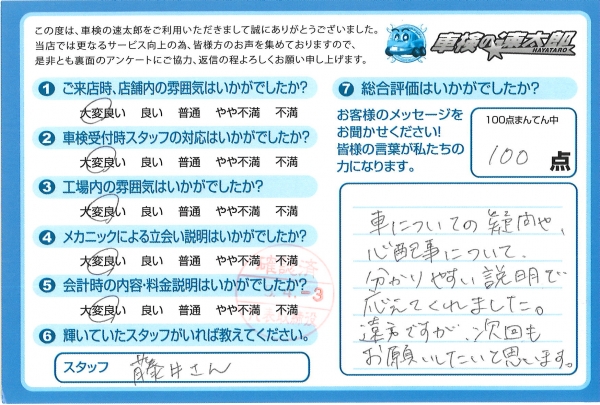 この度は、車検の速太郎をご利用いただきまして誠にありがとうございました。
当店では更なるサービス向上の為、皆様方のお声を集めておりますので、
是非とも裏面のアンケートにご協力、返信の程よろしくお願い申し上げます。
車検の速太郎
HAYATARO
1 ご来店時、店舗内の雰囲気はいかがでしたか?
大変良い 良い 普通 やや不満 不満
2 車検受付時スタッフの対応はいかがでしたか?
大変良い 良い 普通 やや不満 不満
3 工場内の雰囲気はいかがでしたか?
大変良い 良い 普通 やや不満 不満
4 メカニックによる立会い説明はいかがでしたか?
大変良い 良い 普通 やや不満 不満
5 会計時の内容・料金説明はいかがでしたか?
大変良い 良い 普通 やや不満 不満
6 輝いていたスタッフがいれば教えてください。
スタッフ 藤井さん
確認済
-3
7 総合評価はいかがでしたか?
お客様のメッセージを
お聞かせください!
皆様の言葉が私たちの
力になります。
100点まんてん中
100 点
車についての疑問や、
心配事について、
分かりやすい説明で
応えてくれました。
遠方ですが、次回も
お願いしたいと思います。